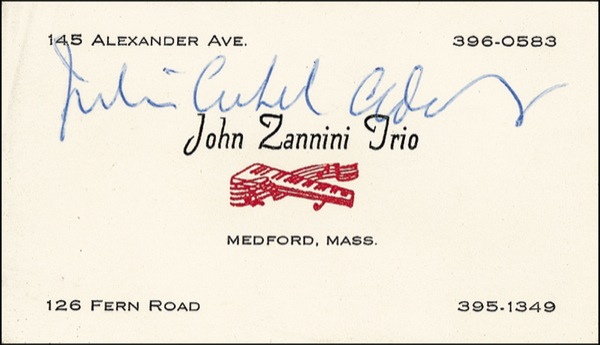 145 ALEXANDER AVE. 396-0583
Julian
John Zannini Trio
MEDFORD, MASS.
126 FERN ROAD 395-1349